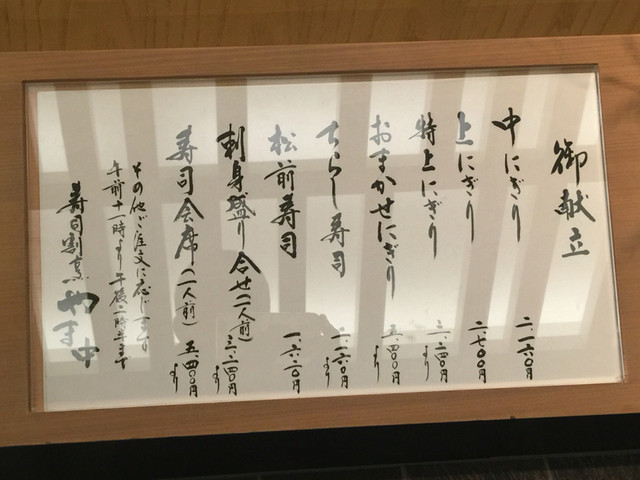 御献立
中にぎり 二、一六〇円
上にぎり 二、七〇〇円
特上にぎり 三、二四〇円より
おまかせにぎり 五、四〇〇円より
ちらし寿司 二、一六〇円より
松前寿司 一、六二〇円
刺身盛り合せ(一人前) 三、二四〇円より
寿司会席(一人前) 五、四〇〇円より
その他ご注文に応じます
午前十一時より午後二時まで
寿司割烹 やま中